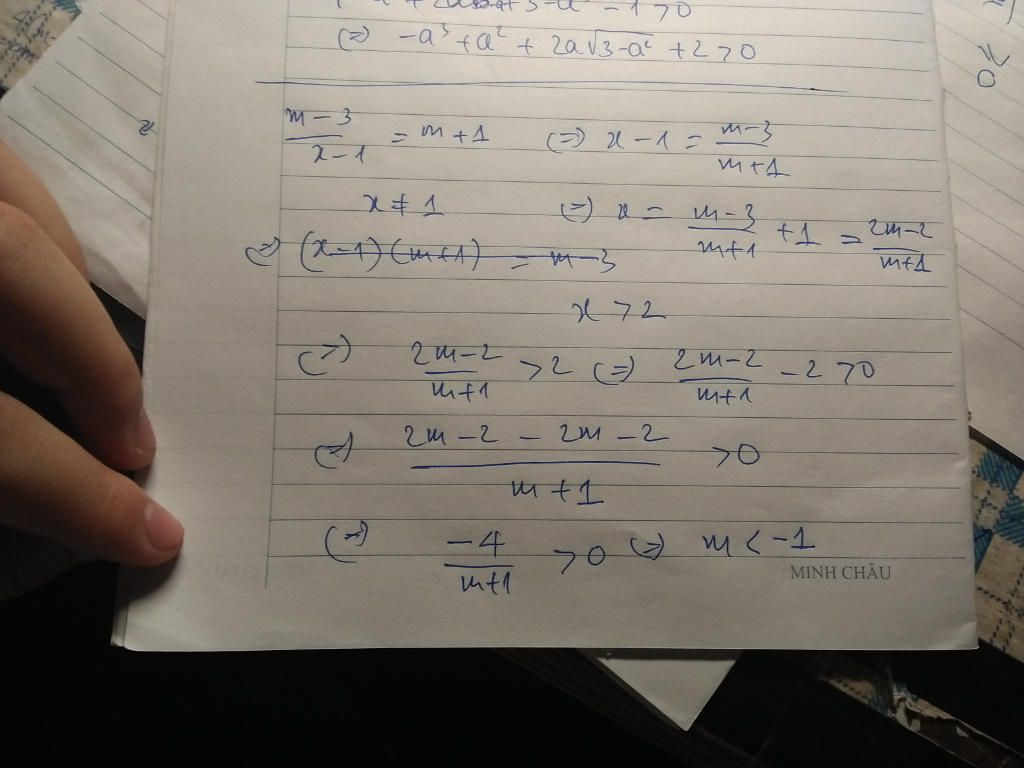 (⇒) -a³ + a² + 2a√3-a² + 2 > 0
m-3/x-1 = m+1 (⇒) x-1 = m-3/m+1
x ≠ 1 (⇒) x = m-3/m+1 + 1 = 2m-2/m+1
(⇒) (x-1)(m+1) = m-3
x > 2
(⇒) 2m-2/m+1 > 2 (⇒) 2m-2/m+1 - 2 > 0
(⇒) 2m-2-2m-2/m+1 > 0
(⇒) -4/m+1 > 0 (⇒) m < -1
MINH CHÂU